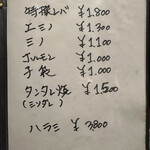 特撰レバ ¥1.800
エミノ ¥1.300
ミノ ¥1.100
ホルモン ¥1.000
子袋 ¥1.000
タンタレ焼 ¥1500
(ミソダレ)
ハラミ ¥3800